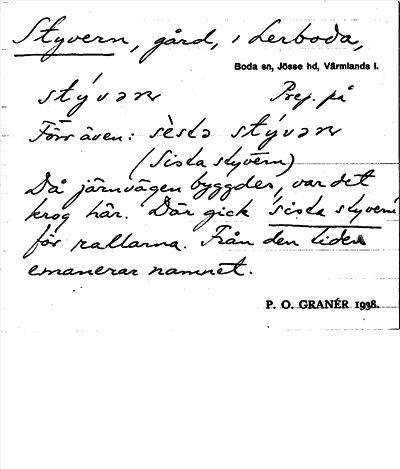 Styvern, gård, i Lerboda,
Boda sn, Jösse hd, Värmlands l.
stývər Prep. på
Förr även: sèsta stývər
(Sista styvern)
Då järnvägen byggdes, var det
krog här. Där gick sista styvern
för rallarna. Från den tiden
emanerar namnet.
P. O. GRANÉR 1938.